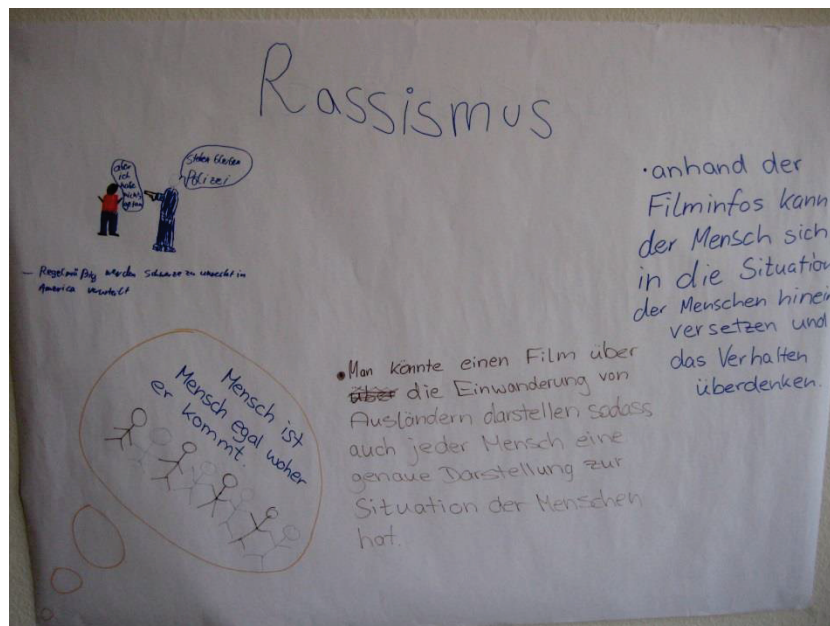 Rassismus
aber
ich
habe
nichts
getan
Stehen bleiben
Polizei
– Regelmäßig werden Schwarze zu unrecht in
America verurteilt
Mensch ist
Mensch egal woher
er kommt.
• Man könnte einen Film über
über die Einwanderung von
Ausländern darstellen sodass
auch jeder Mensch eine
genaue Darstellung zur
Situation der Menschen
hat.
• anhand der
Filminfos kann
der Mensch sich
in die Situation
der Menschen hinein
versetzen und
das Verhalten
überdenken.